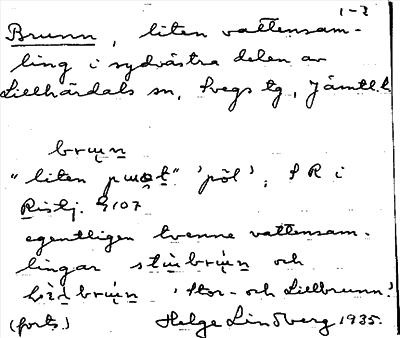 1-2
Brunn, liten vattensam-
ling i sydvästra delen av
Lillhärdals sn, Svegs tg, Jämtl. l
brɯn
"liten pɯt" 'pöl', SR i
Ristj. 9107
egentligen tvenne vattensam-
lingar och
'Stor- och Lillbrunn'.
(forts.) Helge Lindberg 1935.